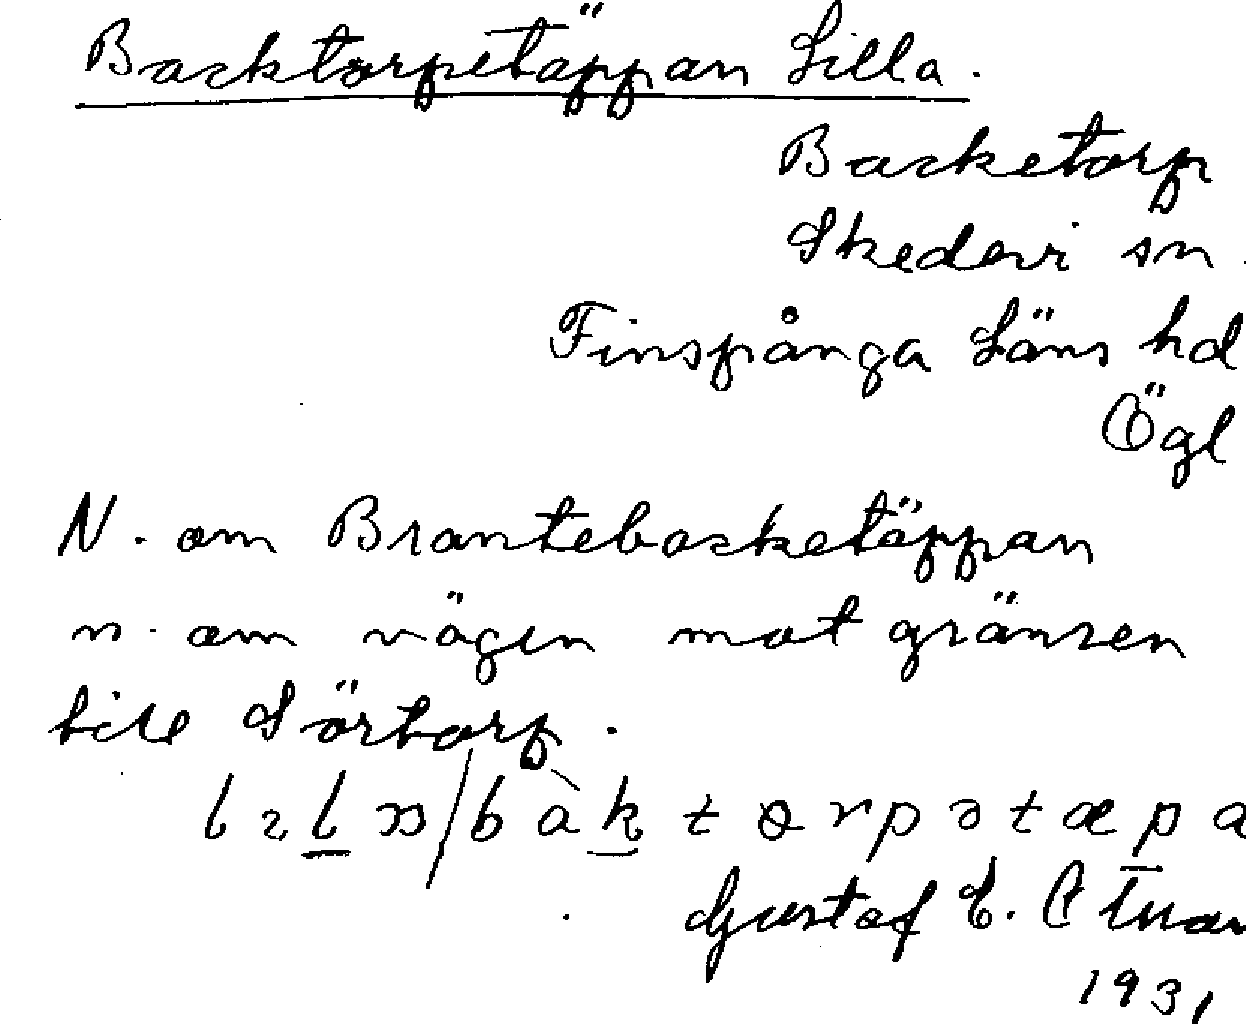 Backtorpetäppan Lilla.
Backetorp
Skedevi sn.
Finspånga Läns hd
Ögl
N. om Brantebacketäppan
n. om vägen mot gränsen
till Sörtorp.
Gustaf E.
1931